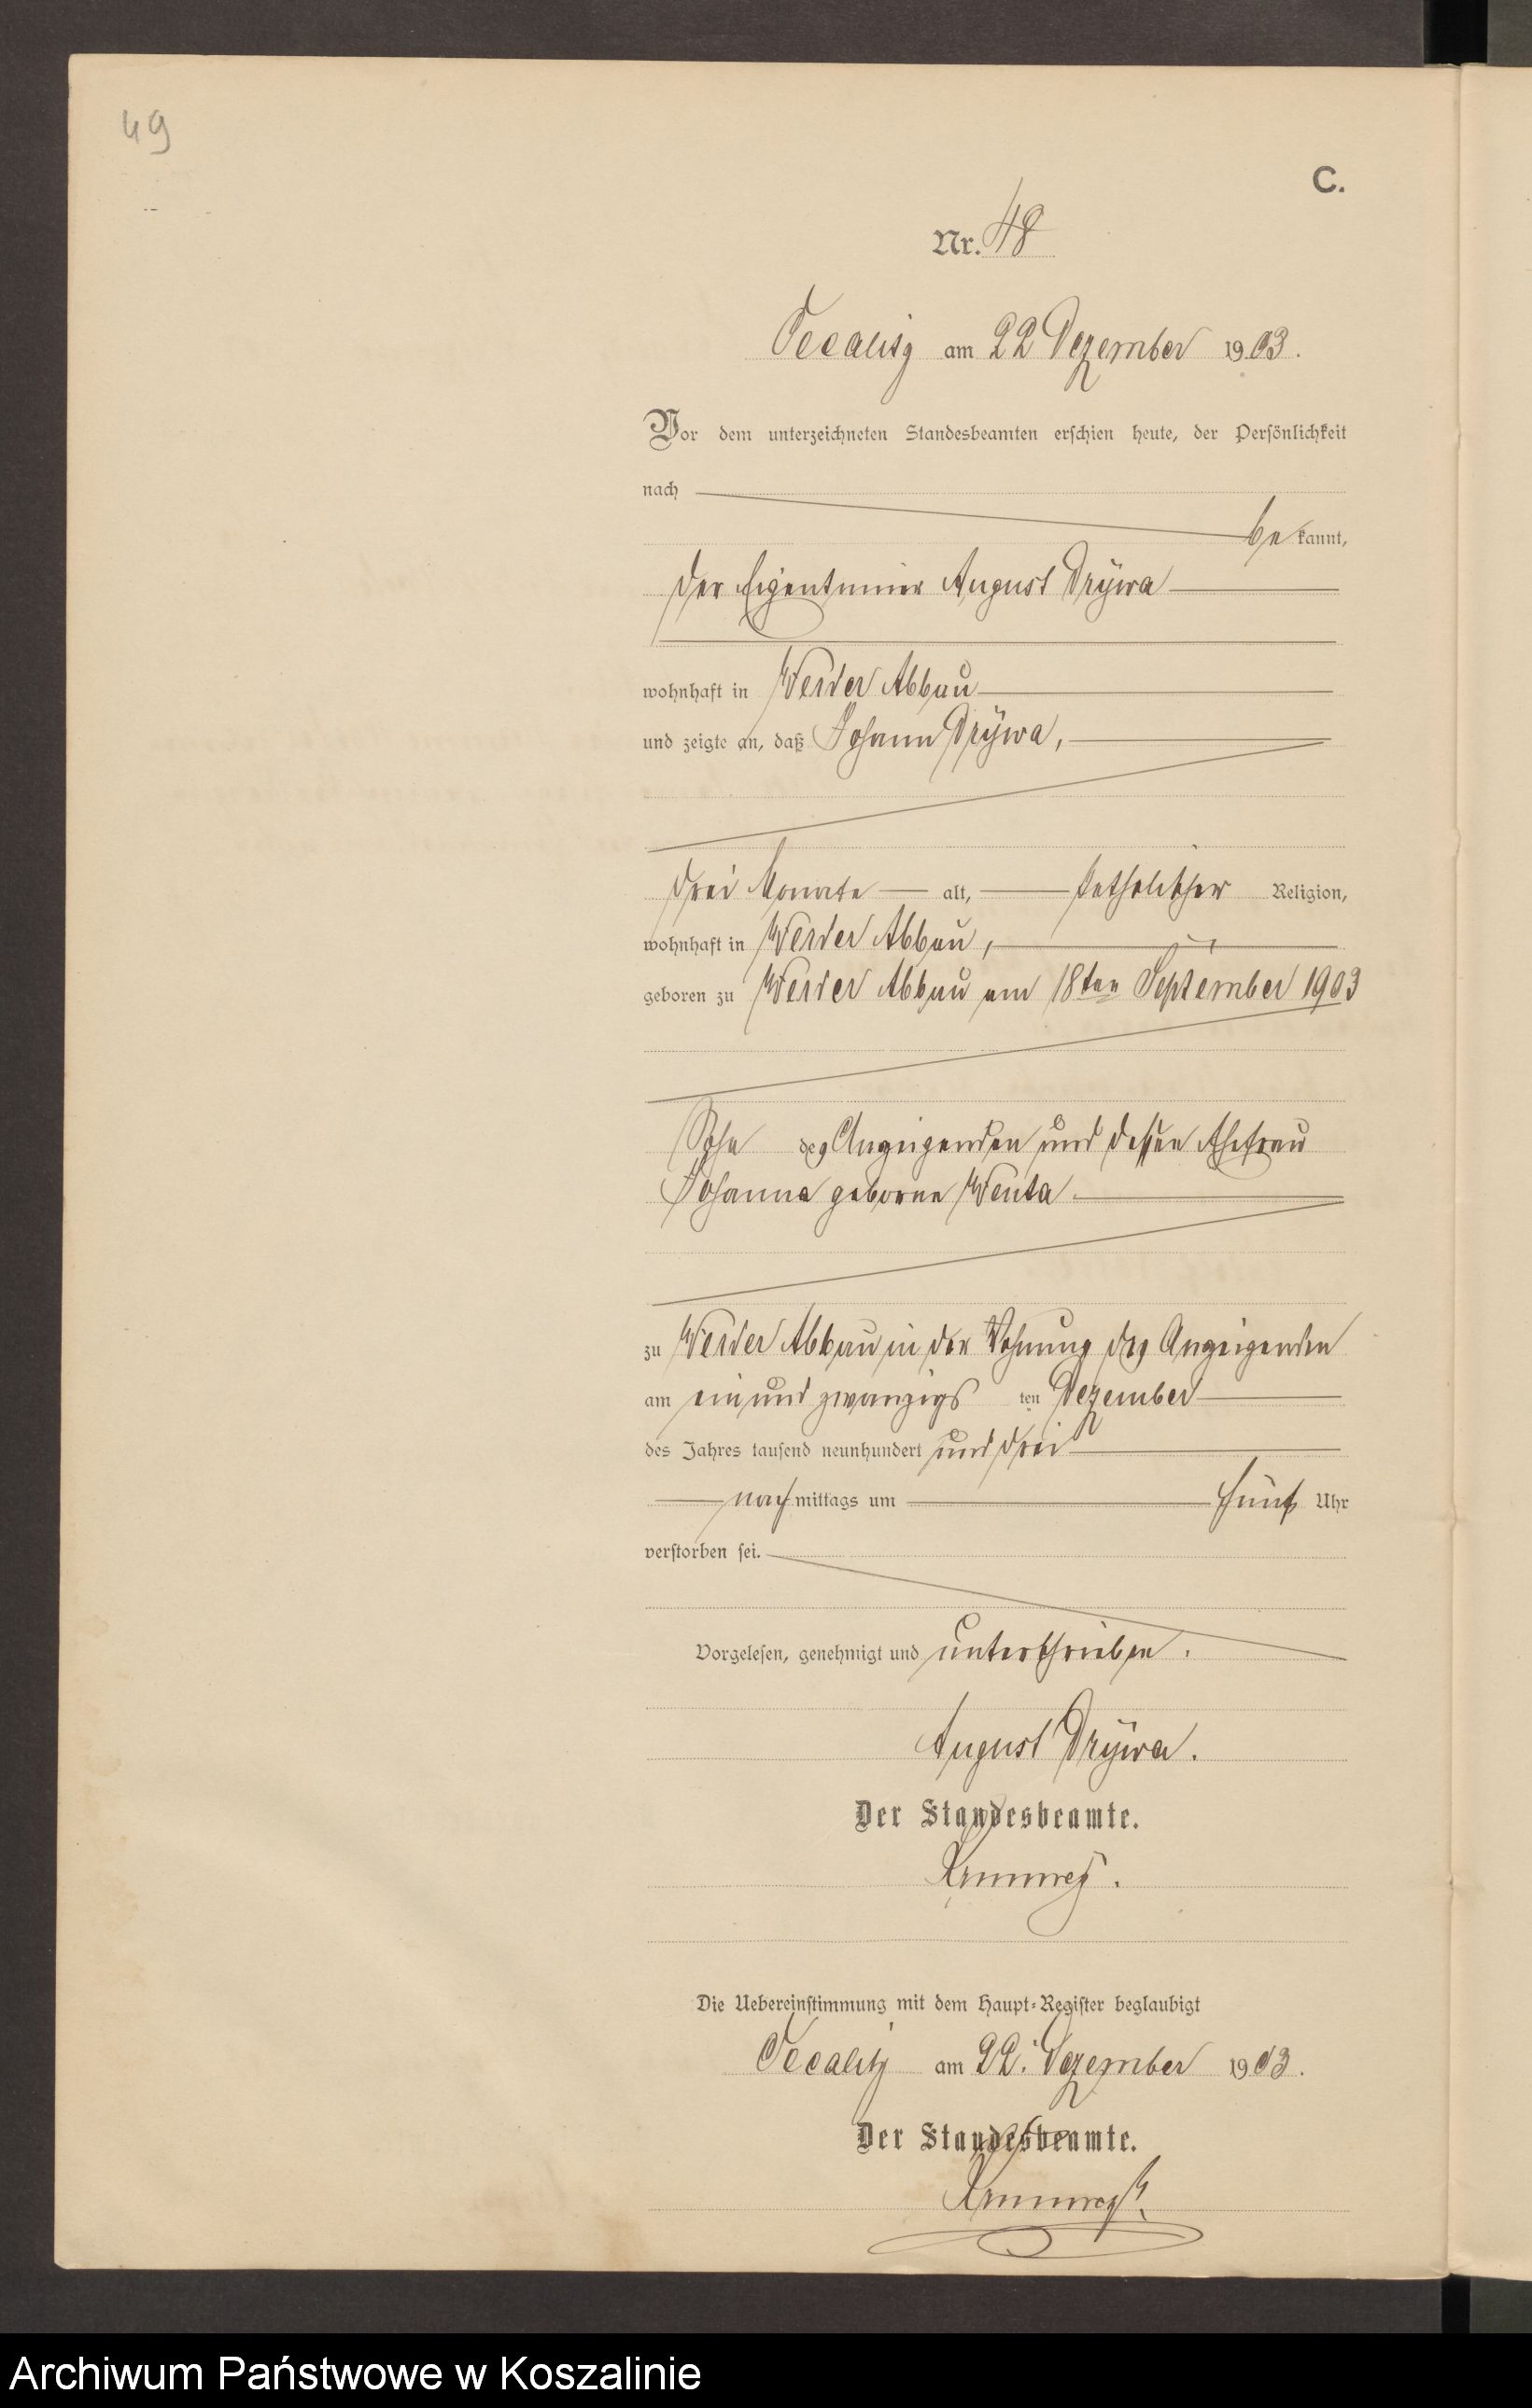 49
C.
Nr. 48
am 22 Dezember 1903.
Vor dem unterzeichneten Standesbeamten erschien heute, der Persönlichkeit
nach
be kannt,
der Eigentümer August Drÿwa
wohnhaft in Werder Abbau
und zeigte an, daß Johann Drÿwa,
drei Monate alt, katholischer Religion,
wohnhaft in Werder Abbau,
geboren zu Werder Abbau am 18ten September 1903
Sohn des Anzeigenden und dessen Ehefrau
Johanna geborne Wenta
zu Werder Abbau in der Wohnung des Anzeigenden
am ein und zwanzigs ten Dezember
des Jahres tausend neunhundert und drei
nach mittags um fünf Uhr
verstorben sei.
Vorgelesen, genehmigt und unterschrieben.
August Drÿwa.
Der Standesbeamte.
Die Uebereinstimmung mit dem Haupt-Register beglaubigt
am 22. Dezember 1903.
Der Standesbeamte.
Archiwum Państwowe w Koszalinie